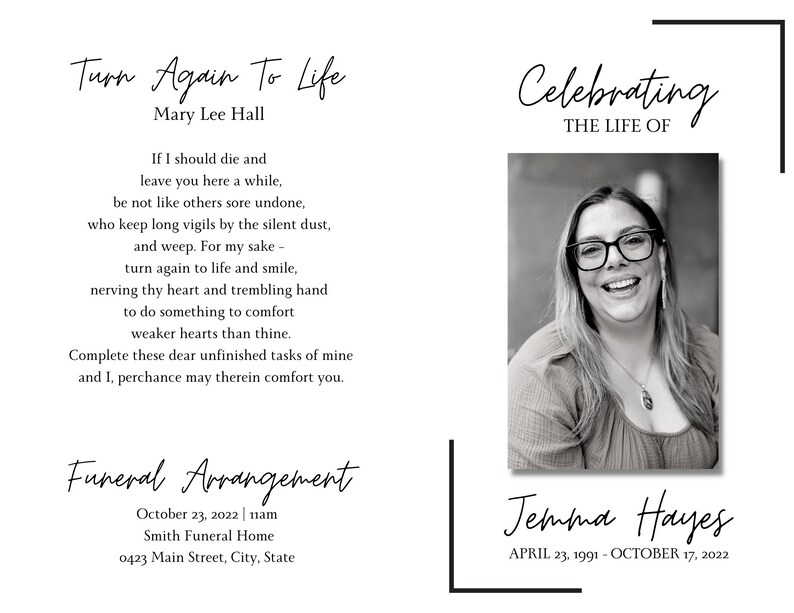 Turn Again To Life
Mary Lee Hall
If I should die and
leave you here a while,
be not like others sore undone,
who keep long vigils by the silent dust,
and weep. For my sake –
turn again to life and smile,
nerving thy heart and trembling hand
to do something to comfort
weaker hearts than thine.
Complete these dear unfinished tasks of mine
and I, perchance may therein comfort you.
Funeral Arrangement
October 23, 2022 | 11am
Smith Funeral Home
0423 Main Street, City, State
Celebrating
THE LIFE OF
Jemma Hayes
APRIL 23, 1991 - OCTOBER 17, 2022